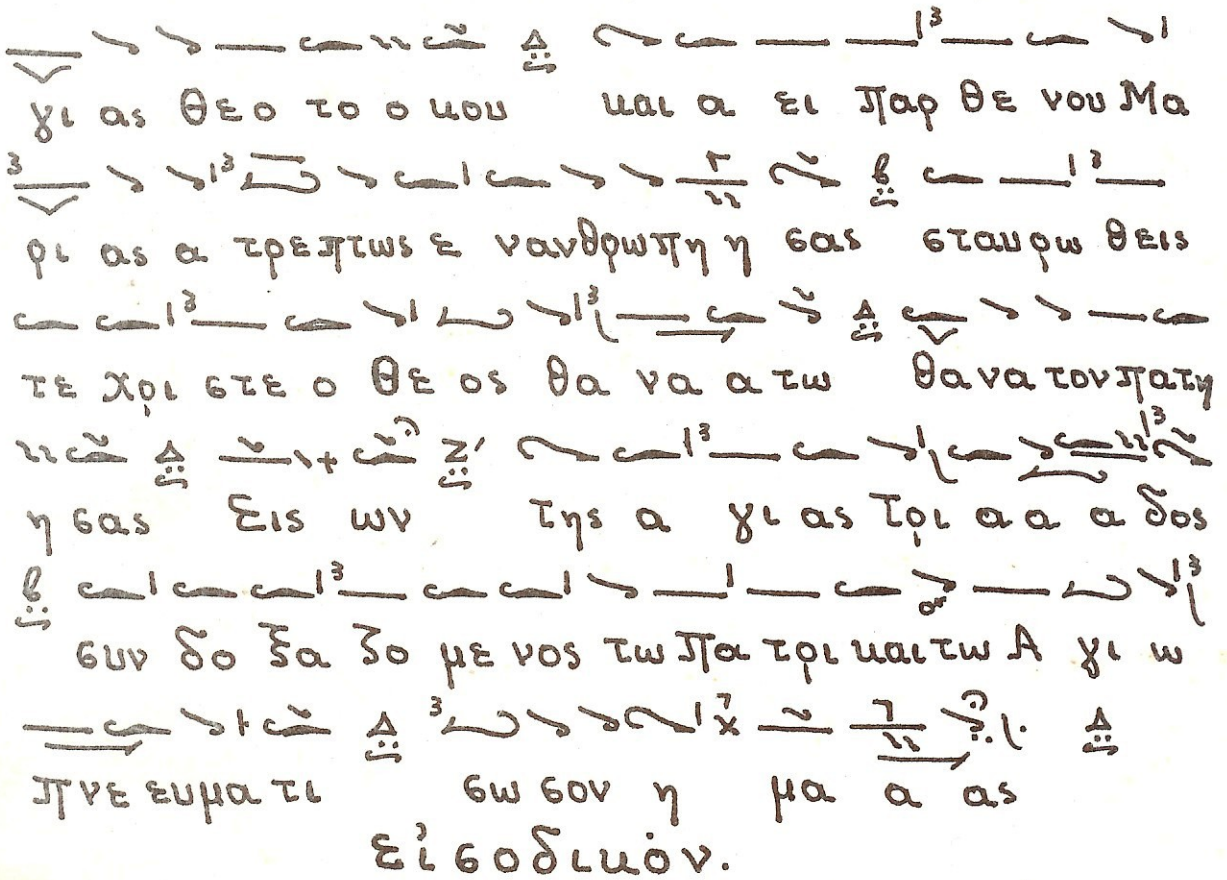 γι ας Θε ο το ο κου και α ει Παρ θε νου Μα
ρι ας α τρεπτως ε νανθρωπη η σας σταυρω θεις
τε Χρι στε ο Θε ος θα να α τω θανατον πατη
η σας Εις ων της α γι ας Τρι α α α δος
συν δο ξα ζο με νος τω Πα τρι και τω Α γι ω
Πνε ευμα τι σω σον η μα α ας
Εἰσοδικόν.